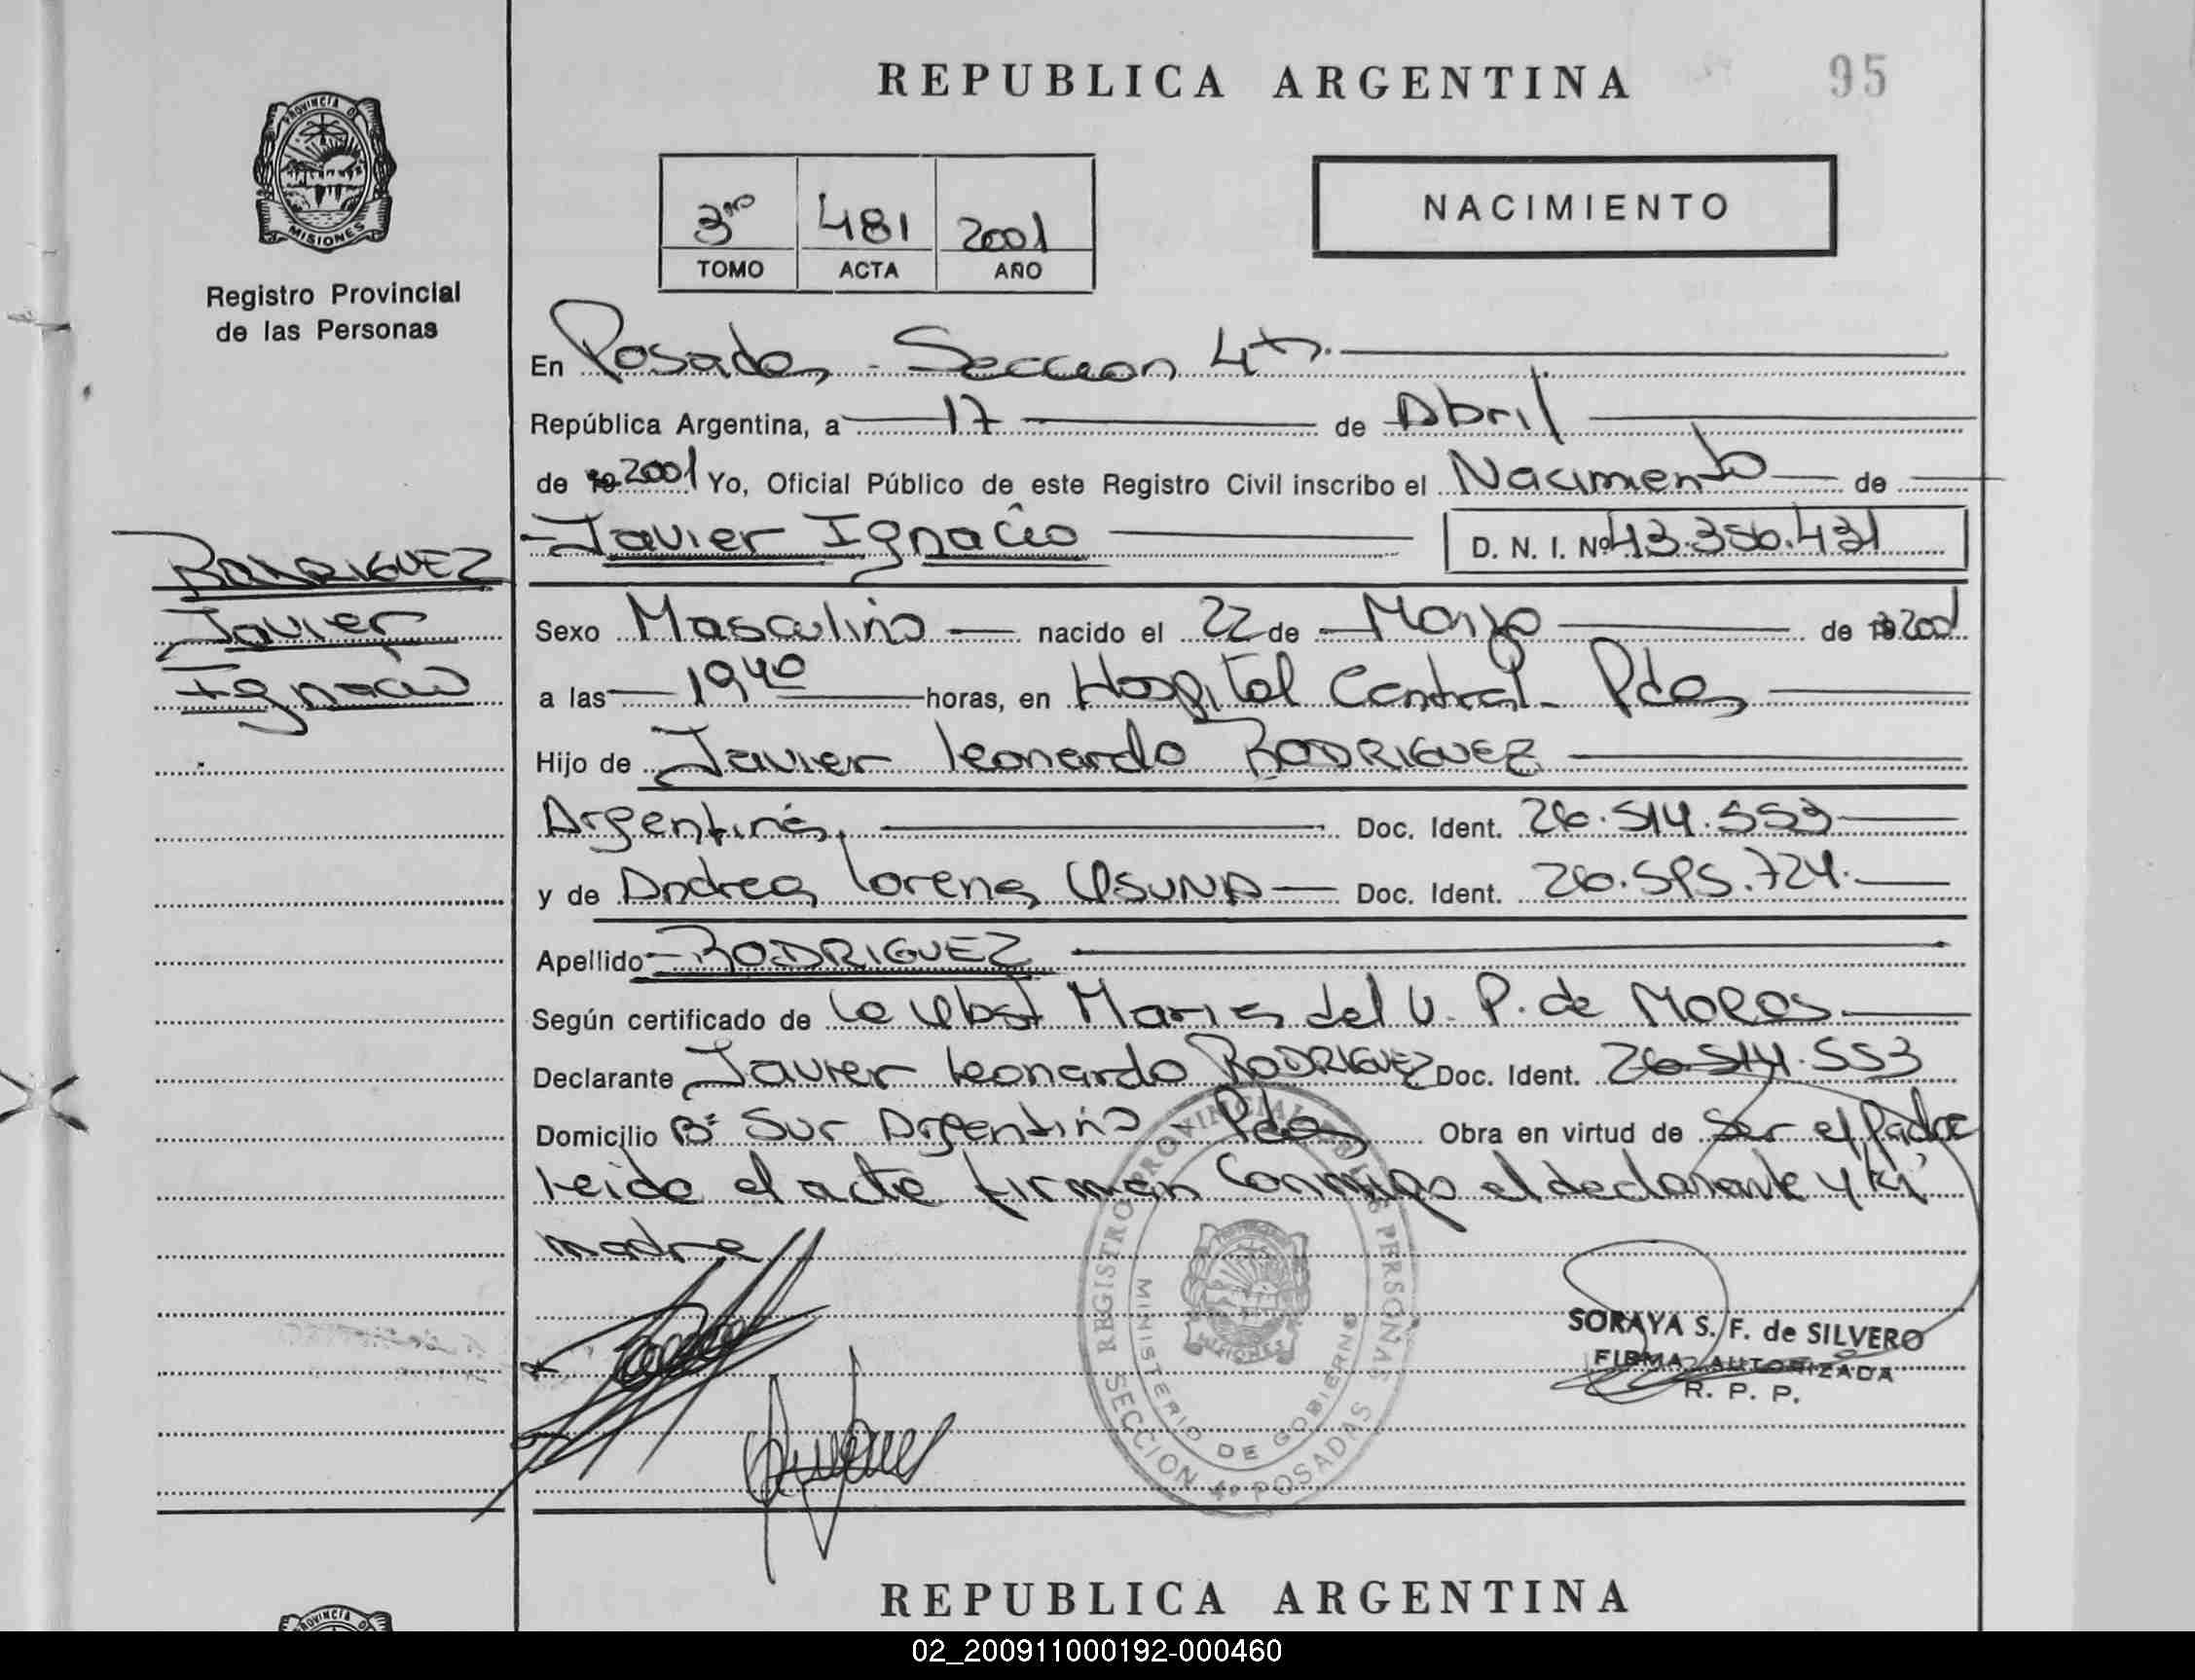 REPUBLICA ARGENTINA
95
PROVINCIA D
MISIONES
Registro Provincial
de las Personas
3ro 481 2001
TOMO ACTA AÑO
NACIMIENTO
En Posadas - Seccion 4ta.
República Argentina, a 17 de Abril
de 2001 Yo, Oficial Público de este Registro Civil inscribo el Nacimiento de
Javier Ignacio D. N. I. Nº 43.356.431
RODRIGUEZ
Javier
Ignacio
Sexo Masculino nacido el 22 de Marzo de 2001
a las 19 40 horas, en Hospital Central - Pdas
Hijo de Javier Leonardo RODRIGUEZ
Argentina, Doc. Ident. 26.514.553
y de Andrea Lorena OSUNA Doc. Ident. 26.595.724.
Apellido RODRIGUEZ
Según certificado de la Obst Maria del V. P. de
Declarante Javier Leonardo RODRIGUEZ Doc. Ident. 26.514.553
Domicilio Bº Sur Argentino - Pdas Obra en virtud de ser el padre
Leida el acta firman conmigo el declarante y la
madre
REGISTRO PROVINCIAL DE LAS PERSONAS
MINISTERIO DE GOBIERNO
SECCION 4º POSADAS
SORAYA S. F. de SILVERO
FIRMA AUTORIZADA
R. P. P.
REPUBLICA ARGENTINA
02_200911000192-000460